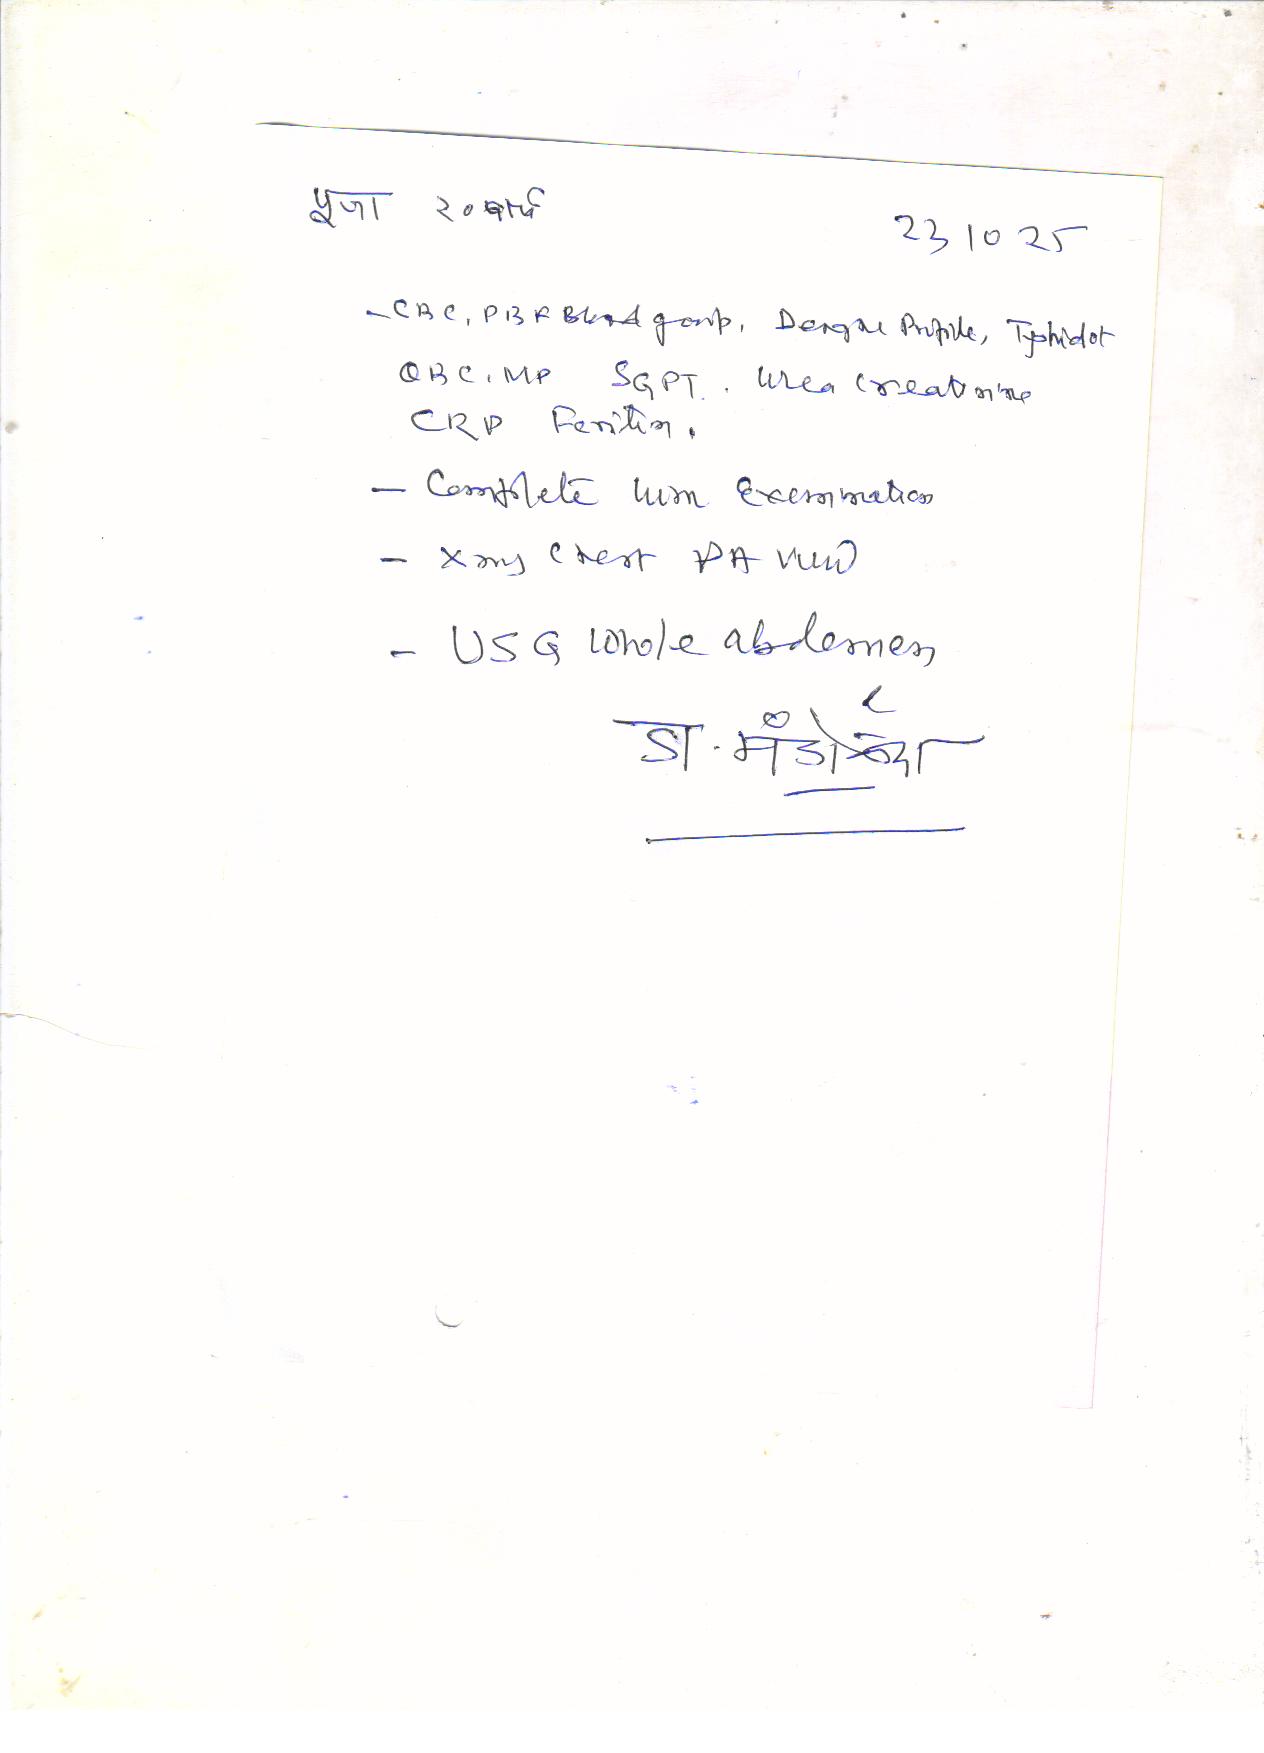 पूजा २० वर्ष
23 10 25
- CBC, PBF Blood group, Dengue Profile, Typhidot
QBC, MP SGPT. Urea Creatinine
CRP Feritin.
- Complete Urin Examination
- Xray Chest PA View
- USG Whole abdomen
डा.